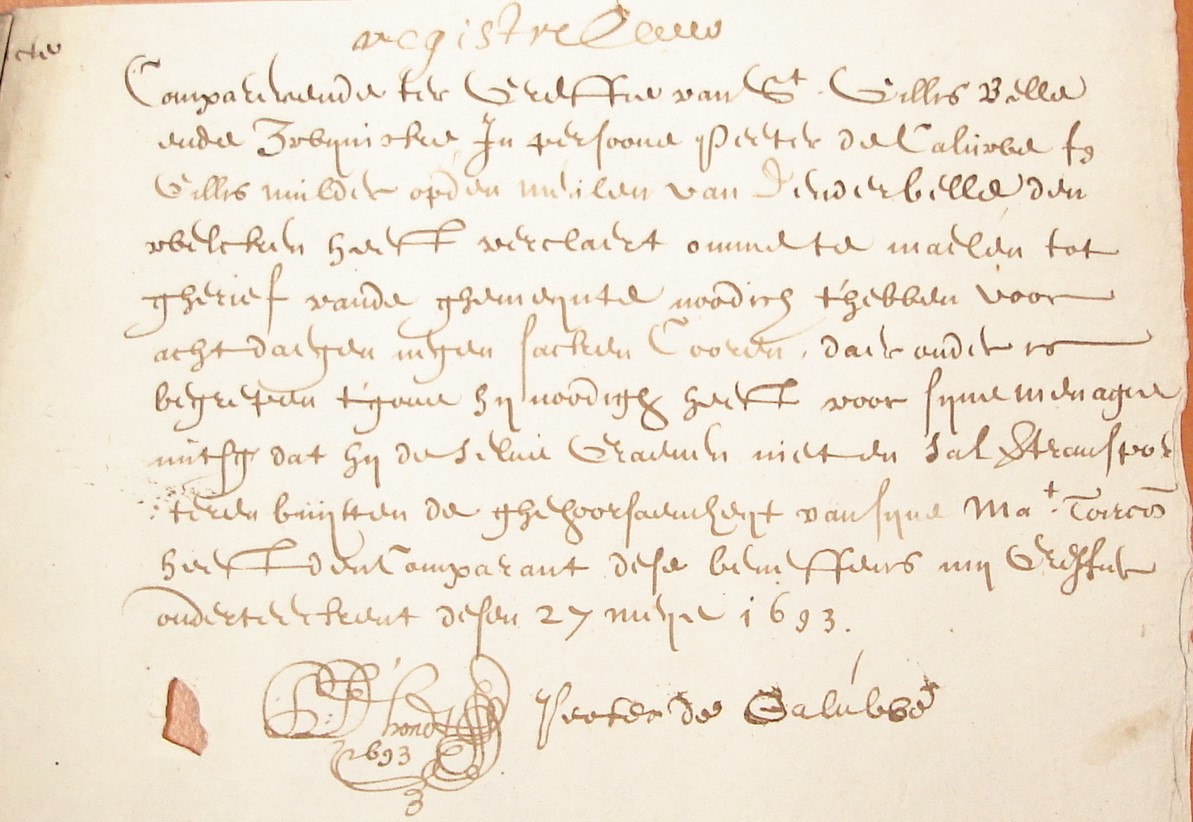 Compareerende ter Greffie van St. Gillis Belle
ende Zwijvicke In persoone Peeter de Caluwe fs
Gillis mulder op den meulen van Denderbelle den
welcken heeft verclaert omme te maelen tot
gherief vande ghemeynte noodich t'hebben voor
acht daegen negen sacken Cooren, daer onder is
begrepen t'gone hij noodigh heeft voor syne menagie
mitsg dat hij de selve Graenen niet en sal transpor
teren buijten de ghehoorsaemheyt van syne Mat.
heeft den Comparant dese beneffens mij Greffier
onderteeckent desen 27 meye 1693.
hondt
1693
Peeter de Caluwe